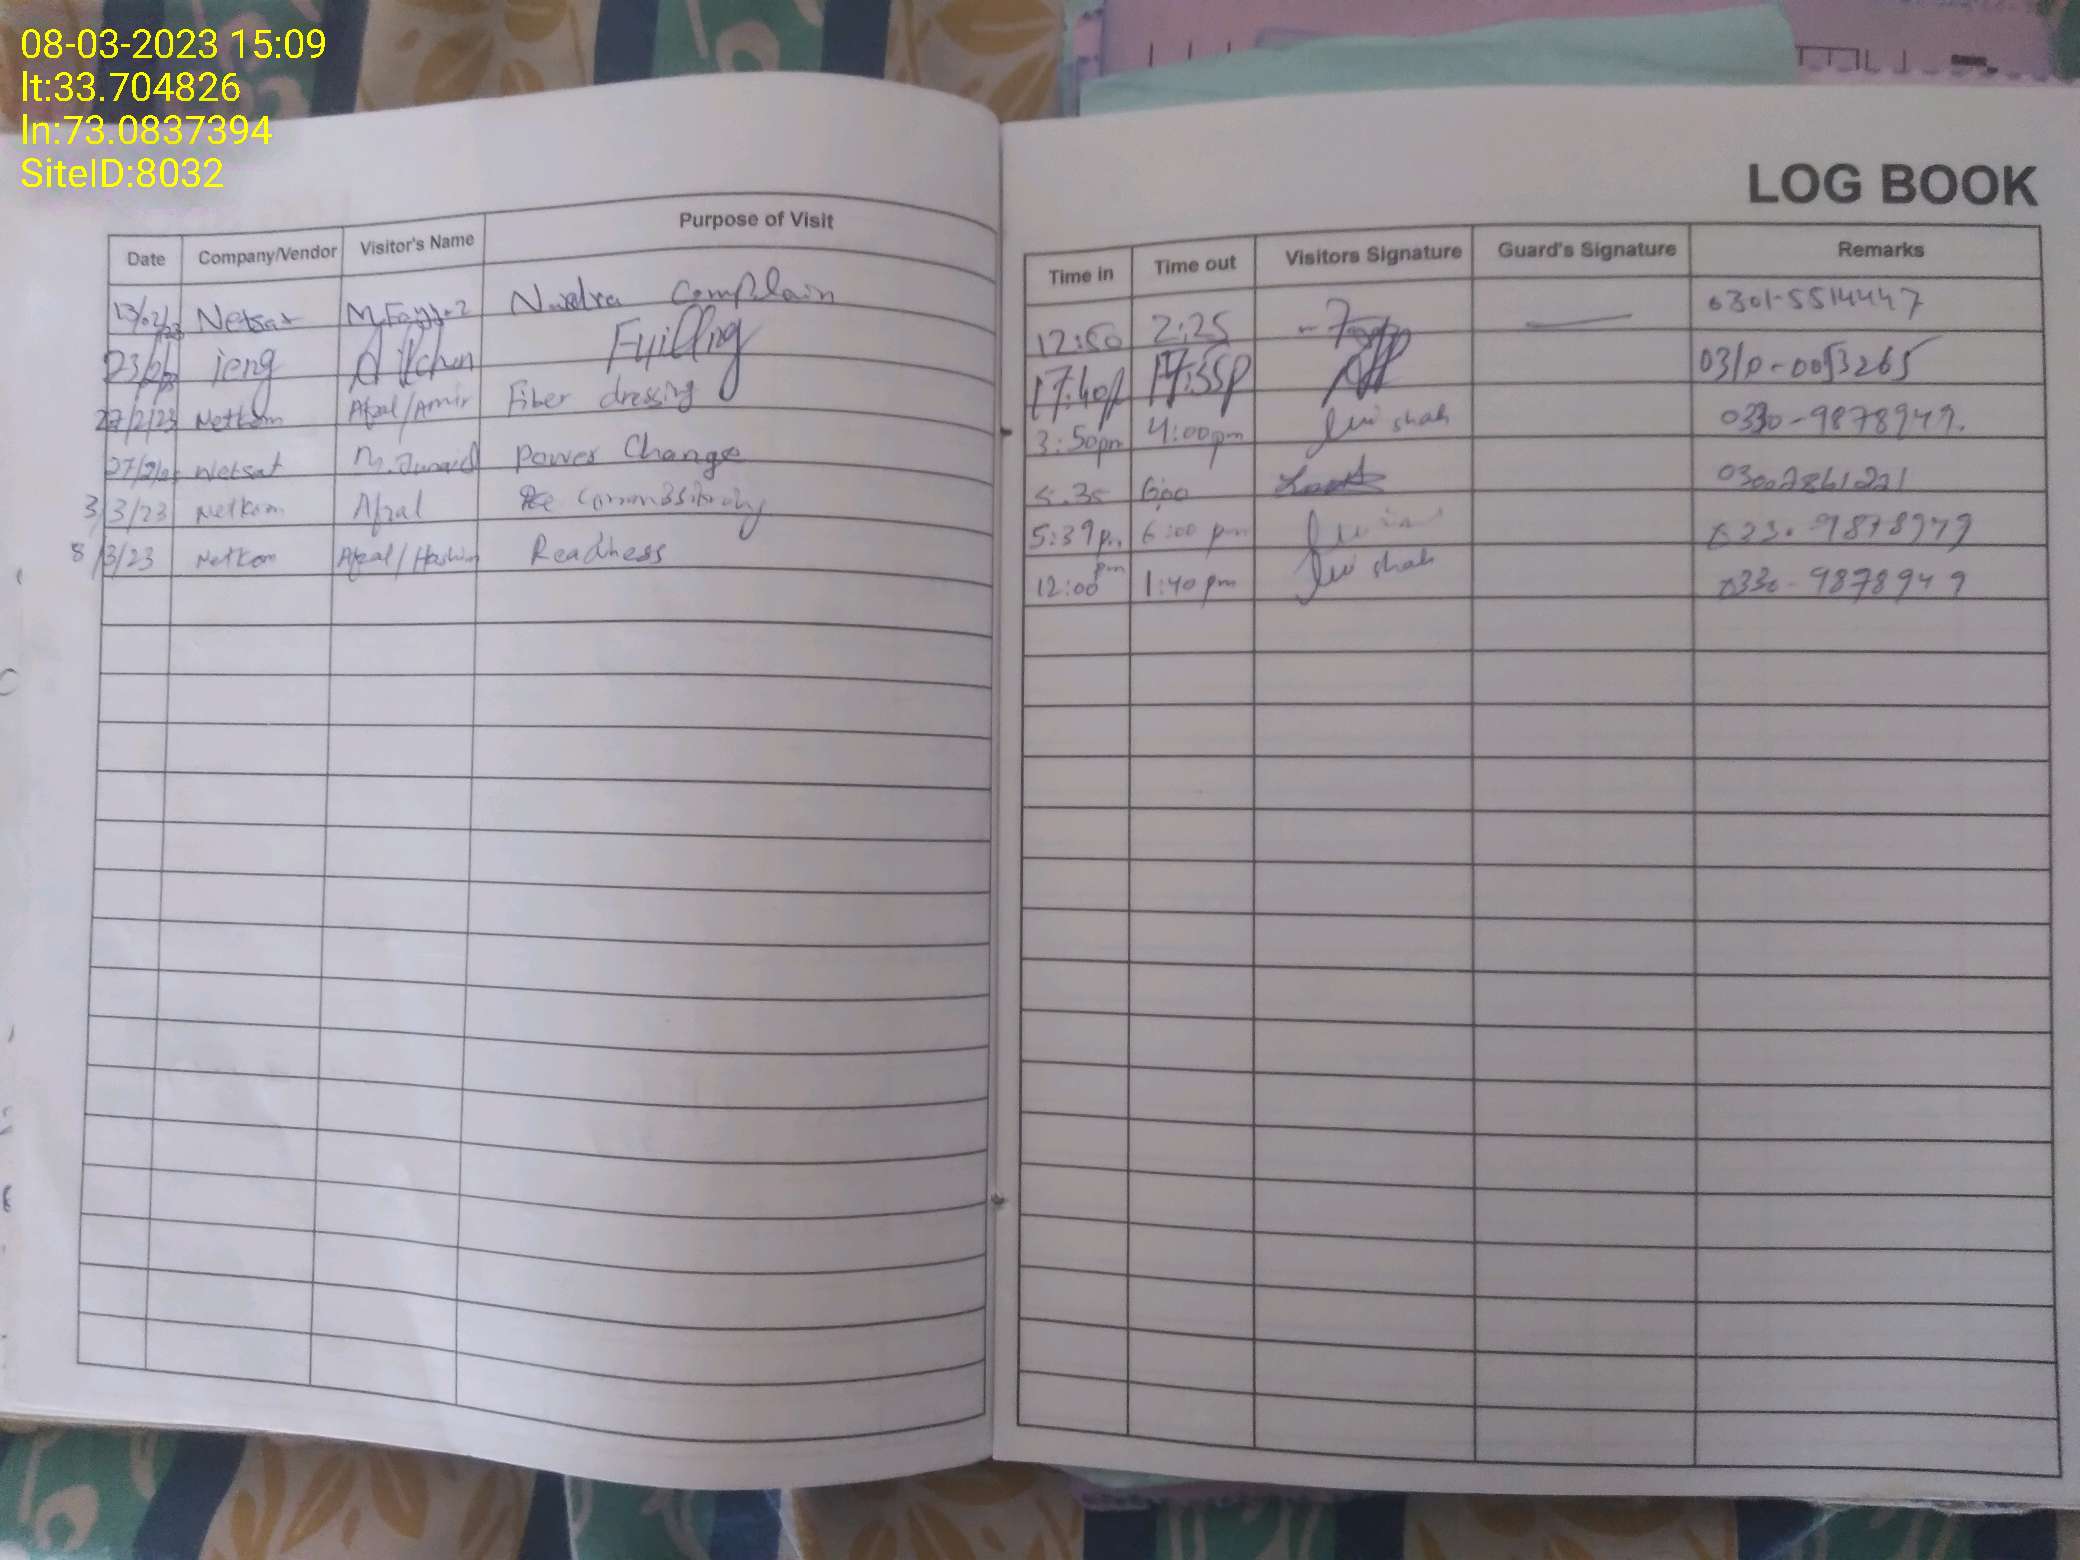 08-03-2023 15:09
lt:33.704826
ln:73.0837394
SiteID:8032
LOG BOOK
Date Company/Vendor Visitor's Name Purpose of Visit Time in Time out Visitors Signature Guard's Signature Remarks
13/02/23 Netsat Complain 12:50 2:25 0301-5514447
ieng Fuilling 17:40p 17:55p 0310-0053265
27/2/23 Netkom Afzal/Amir Fiber dressing 3:50pm 4:00pm shah 0330-9878949.
Netsat M. Junaid Power Change 5.35 6:00
3/3/23 Netkom Afzal 5:39pm 6:00 pm
8/3/23 Netkom Afzal/Hashim Readness 12:00 pm 1:40 pm shah 0330-9878949